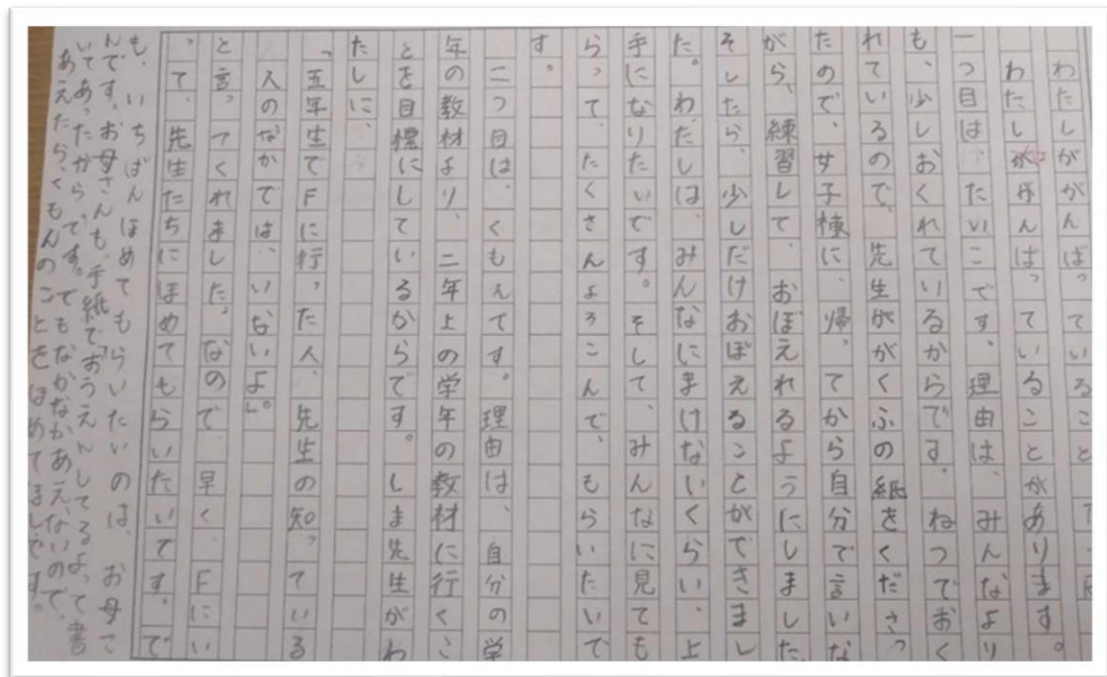 わたしががんばっていること
わたしががんばっていることがあります。
一つ目は、たいこです。理由は、みんなより
も、少しおくれているからです。ねつでおく
れているので、先生ががくふの紙をくださっ
たので、女子棟に、帰ってから自分で言いな
がら、練習して、おぼえれるようにしました。
そしたら、少しだけおぼえることができまし
た。わたしは、みんなにまけないくらい、上
手になりたいです。そして、みんなに見ても
らって、たくさんよろこんで、もらいたいで
す。
二つ目は、くもんです。理由は、自分の学
年の教材より、二年上の学年の教材に行くこ
とを目標にしているからです。しま先生がわ
たしに、
「五年生でFに行った人、先生の知っている
人のなかでは、いないよ」。
と言ってくれました。なので早く、Fにい
って、先生たちにほめてもらいたいです。で
も、いちばんほめてもらいたいのは、お母さ
んです。お母さんも、手紙で「おうえんしてるよって書
いてあったからです。でもなかなかあえないので、
あえたら、くもんのことをほめてほしです。